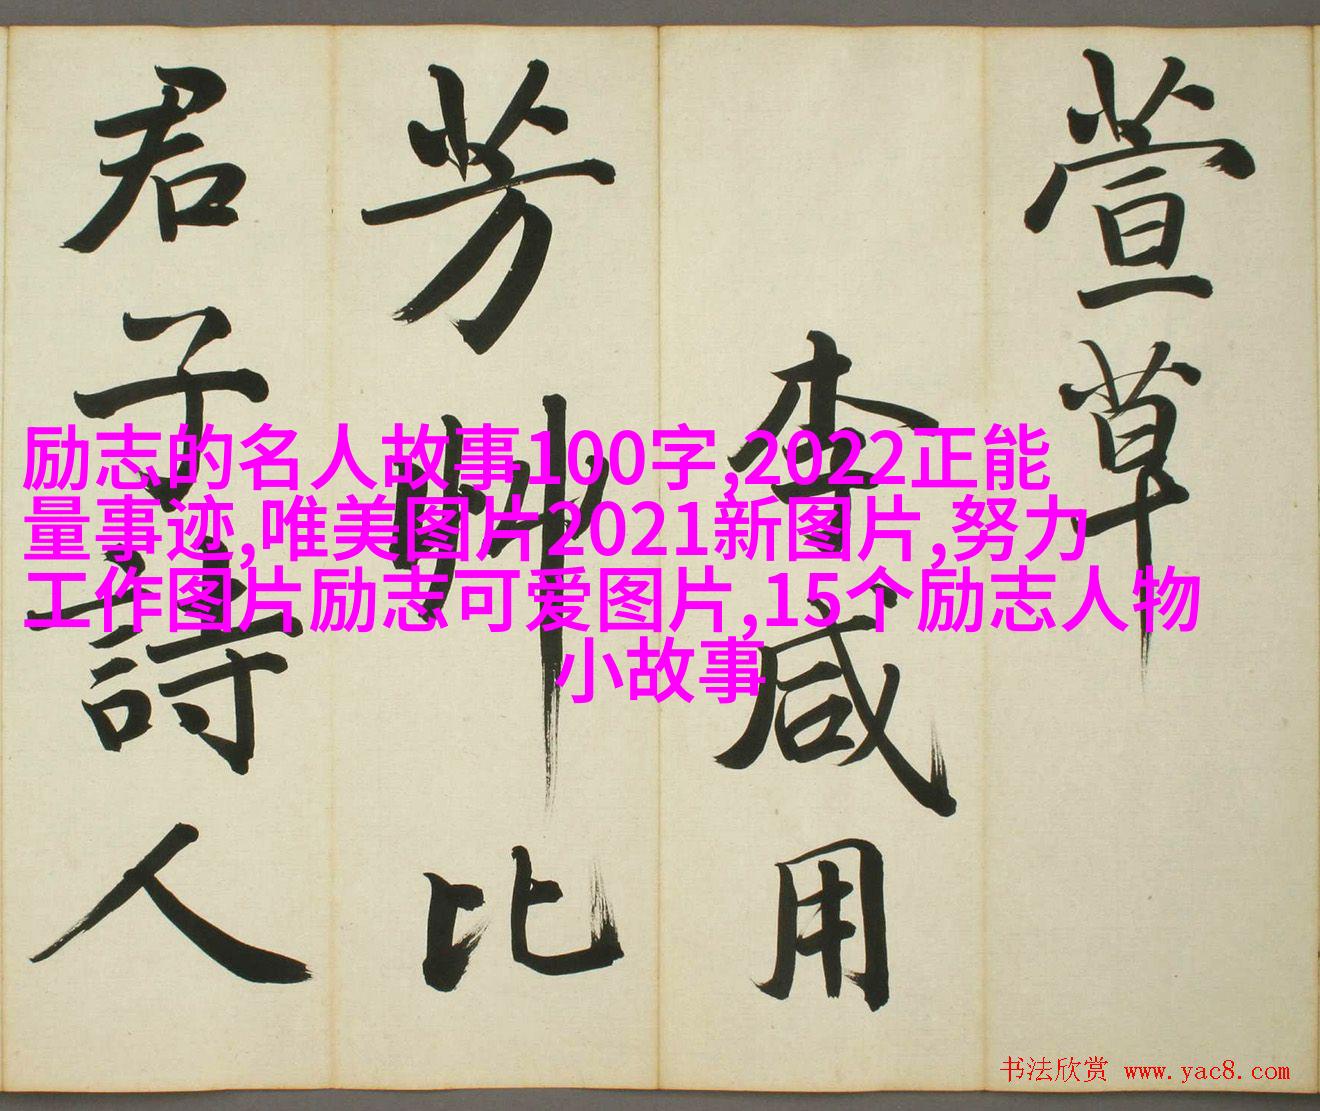 萱草
李咸用
芳艸比
君子詩人
励志的名人故事100字,2022正能
量事迹,唯美图片2021新图片,努力
工作图片励志可爱图片,15个励志人物
小故事
书法欣赏 www.yac8.com